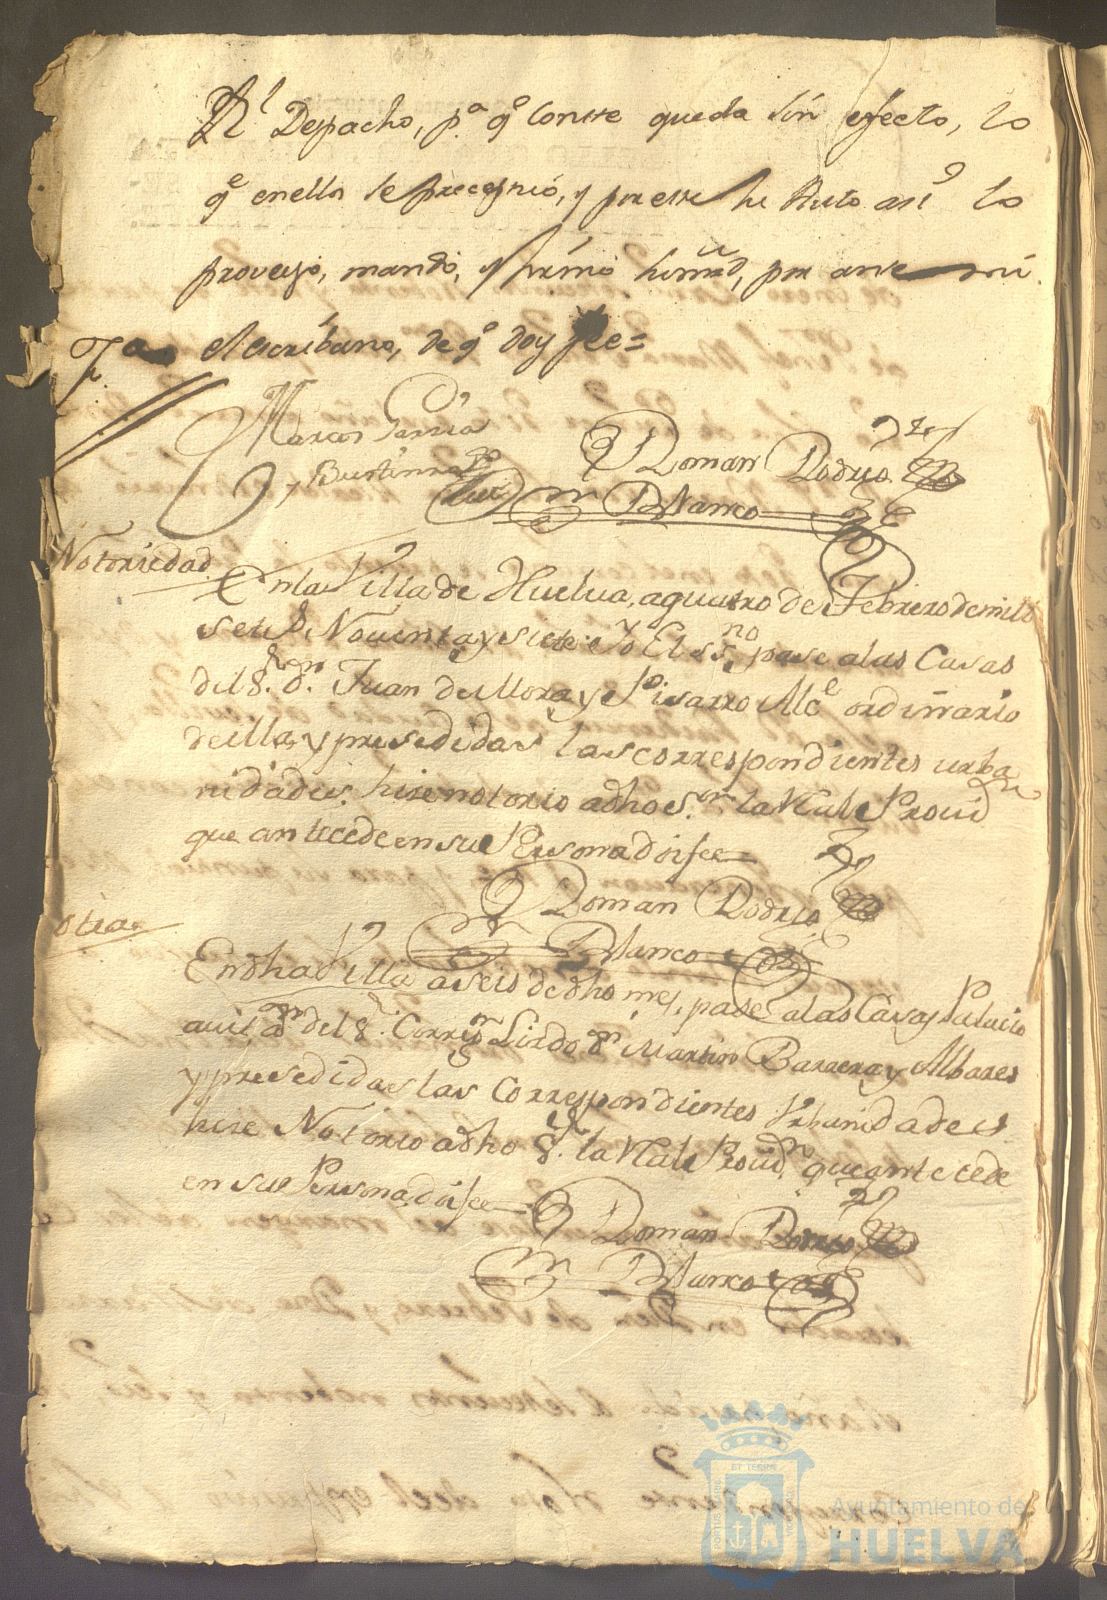 Rl Despacho, p.a q.e conste queda sin efecto, lo
q.e en ella se precepuió, y por este su Auto asi lo
proveyó, mandó, y firmó su mrd, por ante mi
el escribano, de q.e doy fee =
Marcos Garcia
y Bustin
Roman Rodrig
Blanco
Notoriedad
En la Villa de Huelva, a quatro de Febrero de mil
set.s Noventa y siete: Yo El ss.no pase a las Casas
del S.r D.n Juan de Mora y Pisarro Alc.e ordinnario
de ella, y presedidas las correspondientes urba
nidades, hise notorio a dho S.or la Real Provid
que antecede en sue Persona doi fee
Roman Rodrig
Blanco
otra
En dha Villa a seis de dho mes, pase a las Casas Palacio
avit.on del S.r Corr.or Lizdo D.n Martin Barrera y Albares
y presedidas las Correspondientes Urbanidades
hise Notorio a dho S.r la Real Provid.n que antecede
en sue Persona, doi fee
Roman Rodrig
Blanco
Ayuntamiento de
HUELVA